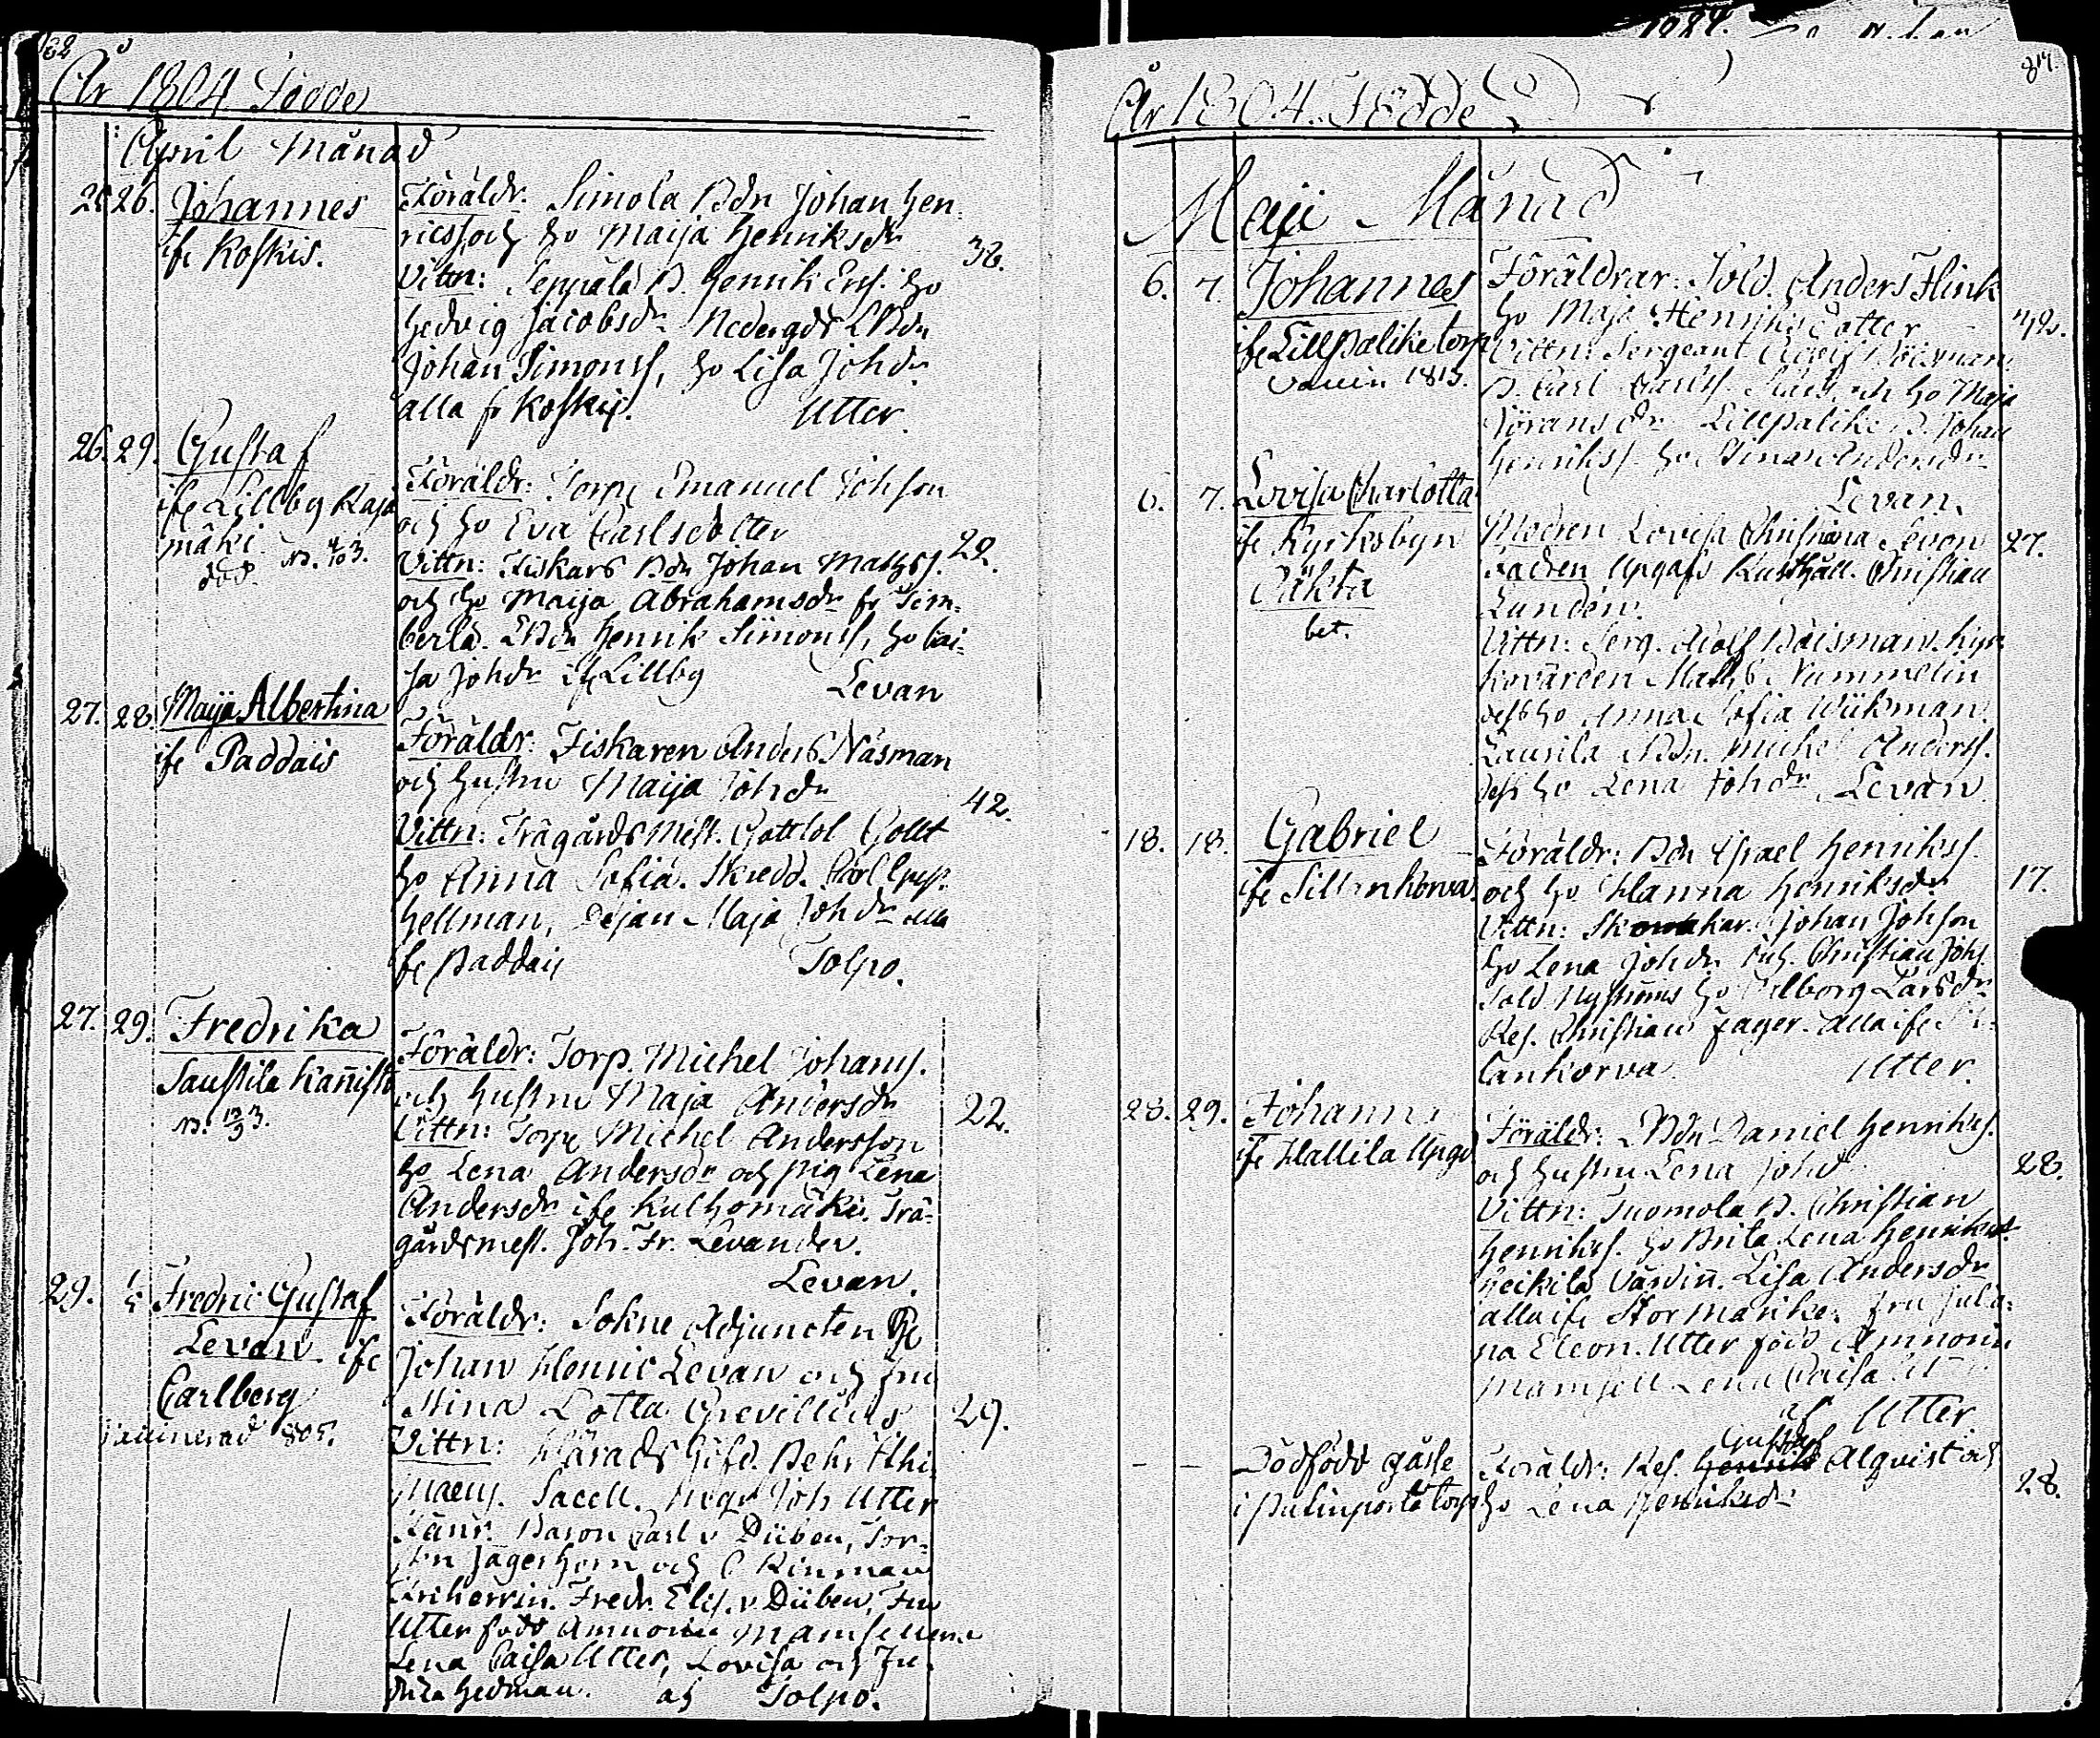 År 1804 Födde
April Månad
26. Johannes
ifr Koskis.
Föräldr: Simola Bdn Johan Hen-
ricss och Ho Maija Henriksdr
38.
Vittn: Seppälä B. Henrik Ers. Ho
Hedvig Jacobsdr Nedergds LBdn
Johan Simonss, Ho Lisa Johdr
alla fr Koskis. Utter.
26. 29. Gustaf
ifr Lillby Kaja
mäki
död.
Föräldr: Torp Emanuel Johson
och Ho Eva Carlsdotter
22.
Vittn: Fiskars Bdn Johan Matss.
och Ho Maija Abrahamsdr fr Tim-
berla. LBdn Henrik Simonss, Ho Cai-
sa Johdr ifr Lillby Levan
27. 28. Maija Albertina
ifr Paddais
Föräldr: Fiskaren Anders Näsman
och Hustru Maija Johdr
42.
Vittn: Trägårds Mest. Gottlob Gollt
Ho Anna Sofia. Skredd. Carl
Hellman, Pejan Maja Johdr alla
fr Paddais Tolpo.
27. 29. Fredrika
Saustila Kañisto
Föräldr: Torp. Michel Johanss.
och Hustru Maja Andersdr
22.
Vittn: Torp Michel Andersson
Ho Lena Andersdr och pig Lena
Andersdr ifr Kulhomäki. Trä-
gårdsmest. Joh. Fr. Levander.
Levan.
29. 1/5 Fredric Gustaf
Levan ifr
Carlberg
Vaccinerad 805.
Föräldr: Sokne Adjuncten
Johan Henric Levan och Fru
Stina Lotta Grevillius
29.
Vittn: Härads Höfd. Behr
Sacell. Joh Utter
Fänr. Baron Carl v Düben, Tor-
sten Jägerhorn och C Kinman
Friherrin. Fredr. Elis. v. Düben, Fru
Utter född Amnorin Mamsellerna
Lena Caisa Utter, Lovisa och Fre-
drika Hedman. af Tolpo.
År 1804. Födde
Maji Månad
6. 7. Johannes
ifr Lillpalike torp
Vaccin 1815.
Föräldrar: Sold. Anders Flink
Ho Maja Henriksdotter
42.
Vittn: Sergeant Adolf Böisman
B. Carl Carlss och Ho Maja
Jöransdr Lillpalike B. Johan
Henrikss. Ho Stina Andersdr
Levan.
6. 7. Lovisa Charlotta
ifr Kyrkobyn
Oäkta
bet.
Modren Lovisa Christina Levon
27.
Fadren Upgafs Rusthåll. Christian
Lundén.
Vittn: Serg. Adolf Böisman. Kyr-
kovärden Matts Nummelin
dess Ho Anna Sofia Wiikman.
Laurila Bdn. Michel Anderss.
dess Ho Lena Johdr Levan
18. 18. Gabriel
ifr Sillankorva
Föräldr: Bdn Israel Henrikss.
och Ho Hanna Henriksdr
17.
Vittn: Skomakar. Johan Johson
Ho Lena Johdr Inh. Christian Johs.
Sold. Nyströms Ho Valborg Larsdr
Res. Christian Jäger. Alla ifr Sil-
lankorva Utter.
28. 29. Johannes
ifr Hallila Upgd
Föräldr: LBdn Daniel Henrikss.
och Hustru Lena Johd
28.
Vittn: Tuomola B. Christian
Henrikss. Ho Brita Lena Henriksdr
Heikila Värdiñ. Lisa Andersdr
alla ifr Stor Marike. Fru Julia-
na Eleon. Utter född Amnorin
Mamsell Lena Caisa
af Utter.
Dödfödd gåsse
i Palinporta torp
Föräldr: Res. Gustaf Alqvist och
Ho Lena Henriksdr
28.